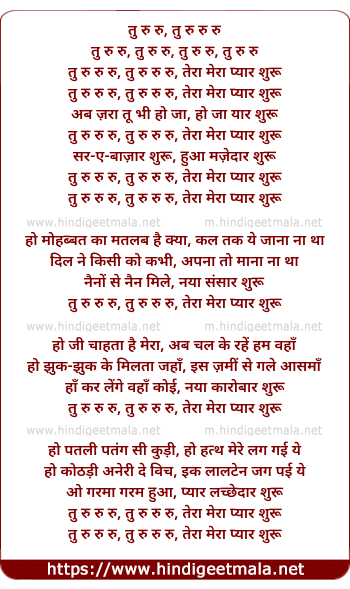 तु रु रु, तु रु रु रु
तु रु रु, तु रु रु, तु रु रु, तु रु रु
तु रु रु रु, तु रु रु रु, तेरा मेरा प्यार शुरू
तु रु रु रु, तु रु रु रु, तेरा मेरा प्यार शुरू
अब ज़रा तू भी हो जा, हो जा यार शुरू
तु रु रु रु, तु रु रु रु, तेरा मेरा प्यार शुरू
सर-ए-बाज़ार शुरू, हुआ मज़ेदार शुरू
तु रु रु रु, तु रु रु रु, तेरा मेरा प्यार शुरू
तु रु रु रु, तु रु रु रु, तेरा मेरा प्यार शुरू
www.hindigeetmala.net m.hindigeetmala.net
हो मोहब्बत का मतलब है क्या, कल तक ये जाना ना था
दिल ने किसी को कभी, अपना तो माना ना था
नैनों से नैन मिले, नया संसार शुरू
तु रु रु रु, तु रु रु रु, तेरा मेरा प्यार शुरू
www.hindigeetmala.net m.hindigeetmala.net
हो जी चाहता है मेरा, अब चल के रहें हम वहाँ
हो झुक-झुक के मिलता जहाँ, इस ज़मीं से गले आसमाँ
हाँ कर लेंगे वहाँ कोई, नया कारोबार शुरू
तु रु रु रु, तु रु रु रु, तेरा मेरा प्यार शुरू
www.hindigeetmala.net m.hindigeetmala.net
हो पतली पतंग सी कुड़ी, हो हत्थ मेरे लग गई ये
हो कोठड़ी अनेरी दे विच, इक लालटेन जग पई ये
ओ गरमा गरम हुआ, प्यार लच्छेदार शुरू
तु रु रु रु, तु रु रु रु, तेरा मेरा प्यार शुरू
तु रु रु रु, तु रु रु रु, तेरा मेरा प्यार शुरू
https://www.hindigeetmala.net